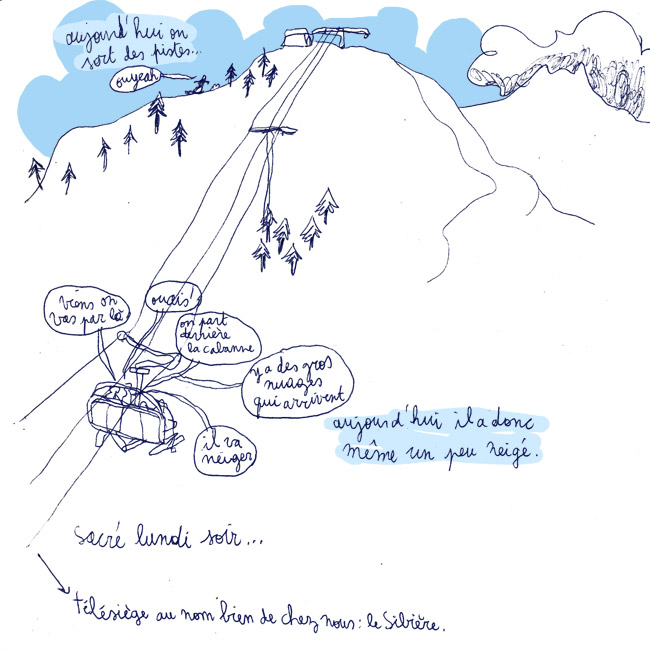 aujourd'hui on
sort des pistes...
ouyeah
viens on
vas par là
ouais!
on part
derrière
la cabanne
y a des gros
nuages
qui arrivent
il va
neiger
aujourd'hui il a donc
même un peu neigé.
Sacré lundi soir...
télésiège au nom bien de chez nous: le Sibière.